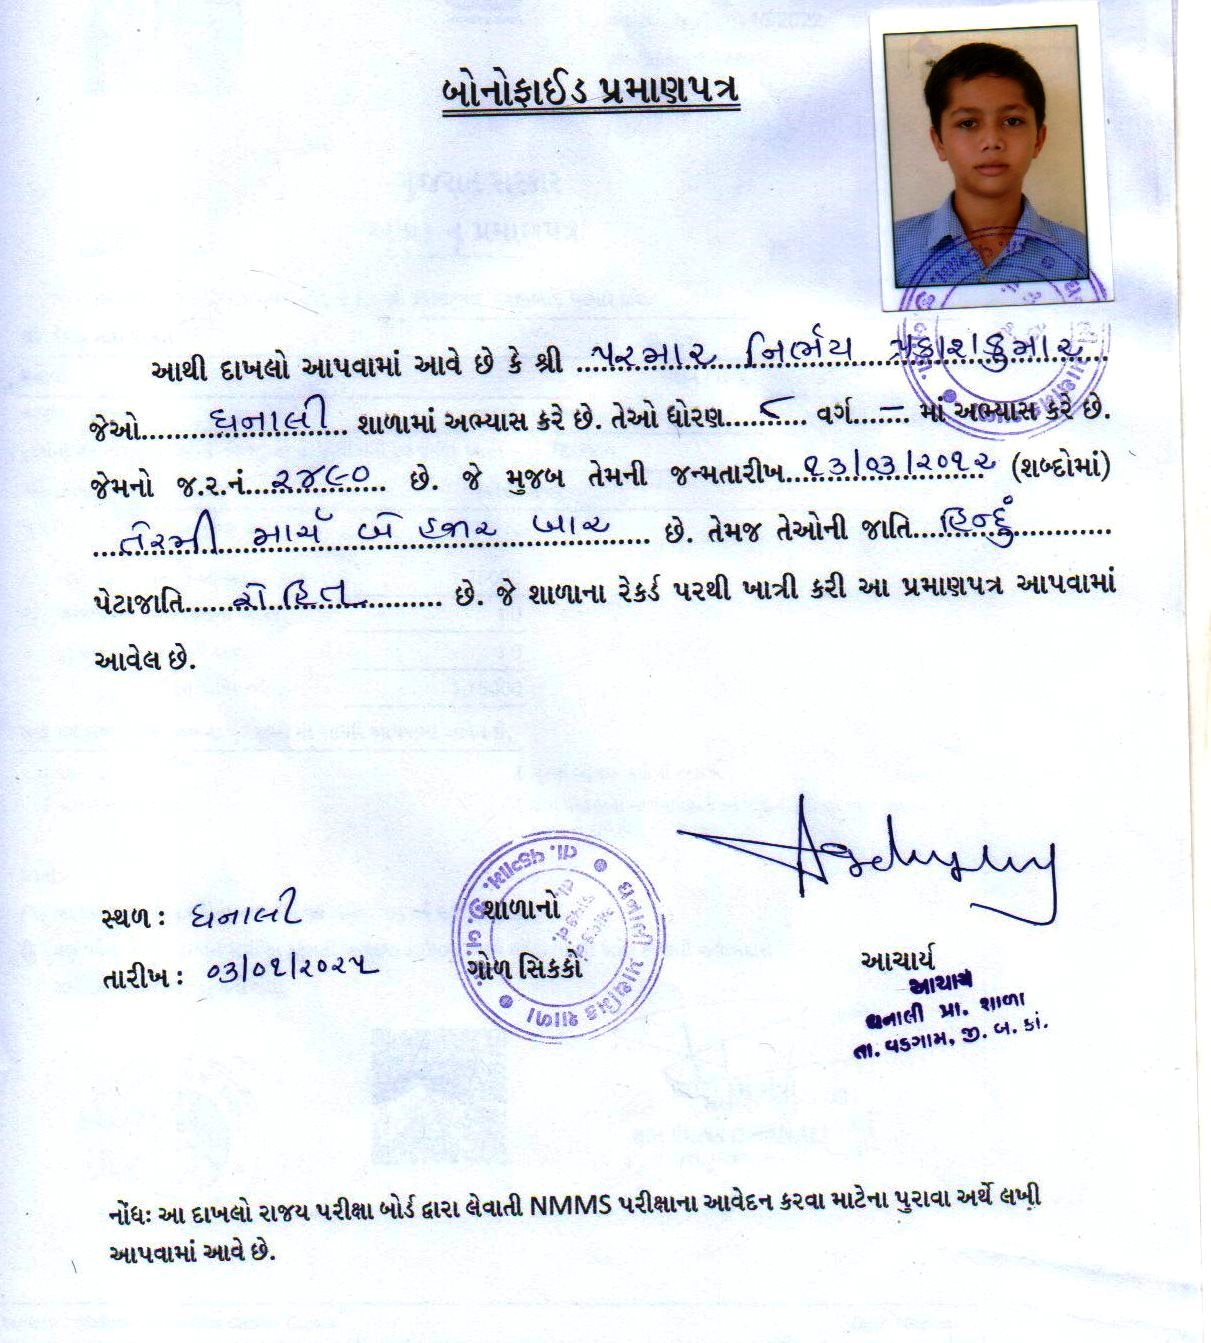 બોનોફાઈડ પ્રમાણપત્ર
આથી દાખલો આપવામાં આવે છે કે શ્રી પરમાર નિર્ભય પ્રકાશકુમાર
જેઓ ધનાલી શાળામાં અભ્યાસ કરે છે. તેઓ ધોરણ ૮ વર્ગ - માં અભ્યાસ કરે છે.
જેમનો જ.ર.નં. ૨૪૯૦ છે. જે મુજબ તેમની જન્મતારીખ ૧૩/૦૩/૨૦૧૨ (શબ્દોમાં)
તેરમી માર્ચ બે હજાર બાર છે. તેમજ તેઓની જાતિ હિન્દુ
પેટાજાતિ રોહિત છે. જે શાળાના રેકર્ડ પરથી ખાત્રી કરી આ પ્રમાણપત્ર આપવામાં
આવેલ છે.
સ્થળ : ધનાલી
તારીખ : ૦૩/૦૧/૨૦૨૫
શાળાનો
ગોળ સિક્કો
ધનાલી પ્રાથમિક શાળા
તા. વડગામ, જી. બ.કાં.
આચાર્ય
આચાર્ય
ધનાલી પ્રા. શાળા
તા. વડગામ, જી. બ. કાં.
નોંધઃ આ દાખલો રાજય પરીક્ષા બોર્ડ દ્વારા લેવાતી NMMS પરીક્ષાના આવેદન કરવા માટેના પુરાવા અર્થે લખી
આપવામાં આવે છે.